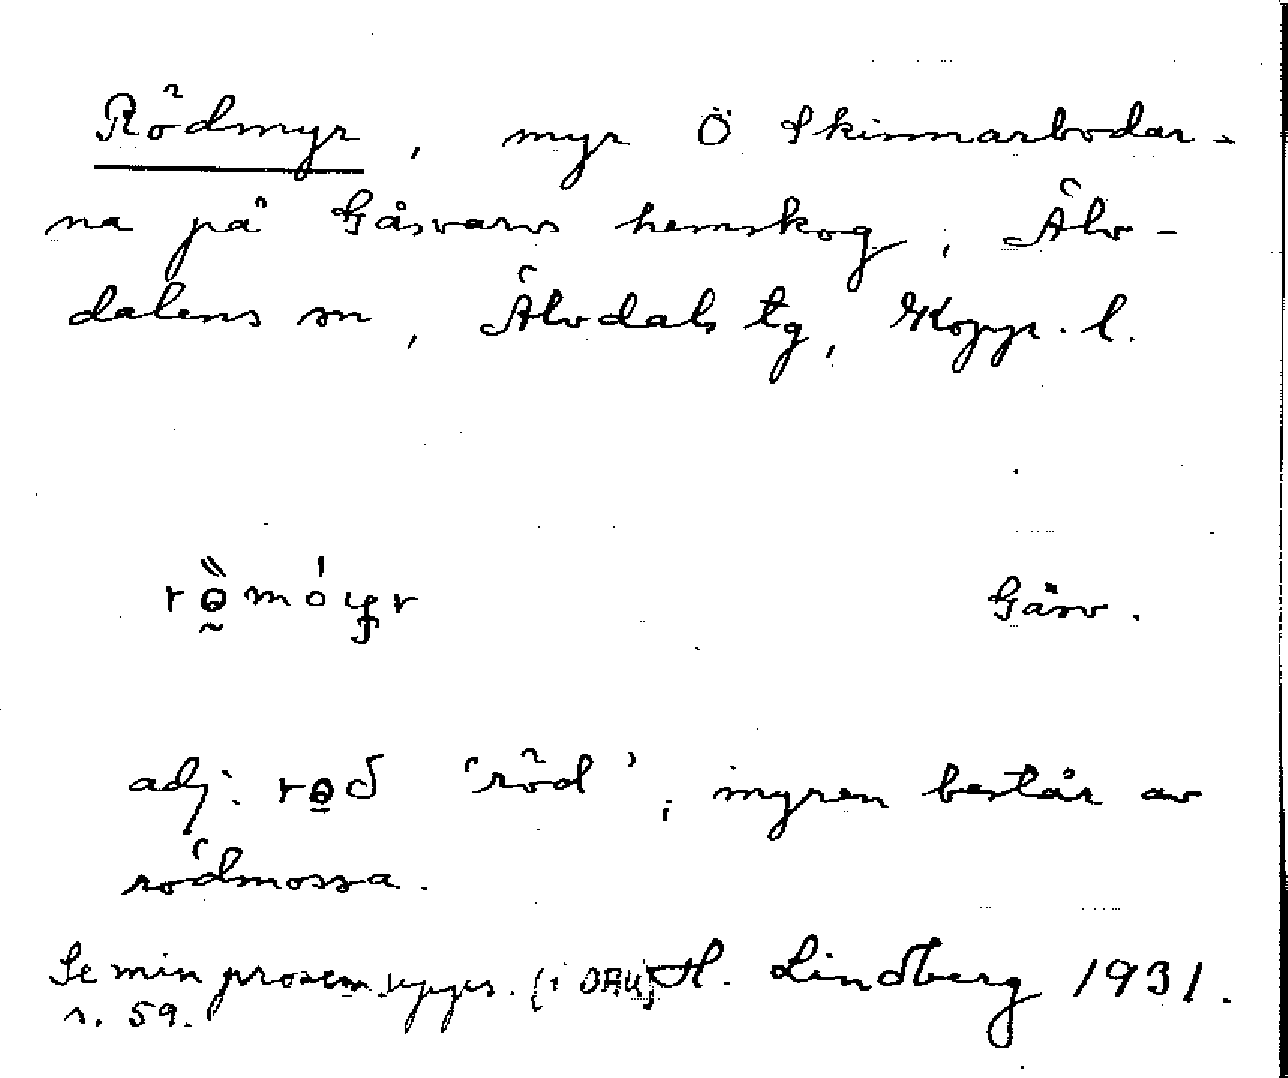 Rödmyr, myr Ö Skinnarbodar-
na på Gåsvarvs hemskog, Älv-
dalens sn, Älvdals tg, Kopp. l.
Gåsv.
adj. rɵð 'röd', myren består av
rödmossa.
Se min proxem.uppss. (i OAU) H. Lindberg 1931.
s. 59.